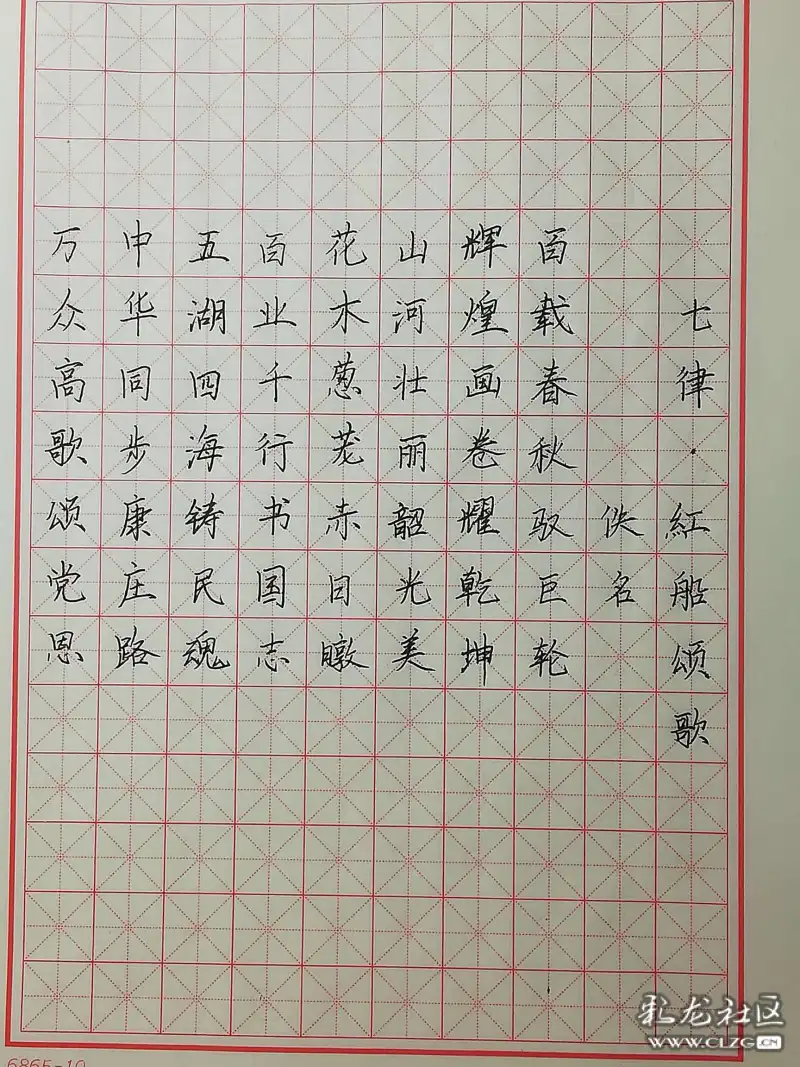 七律·紅船颂歌
佚名
百载春秋驭巨轮
辉煌画卷耀乾坤
山河壮丽韶光美
花木葱茏赤日暾
百业千行书国志
五湖四海铸民魂
中华同步康庄路
万众高歌颂党恩
6865-10
乳龙社区
WWW.CLZG.CN